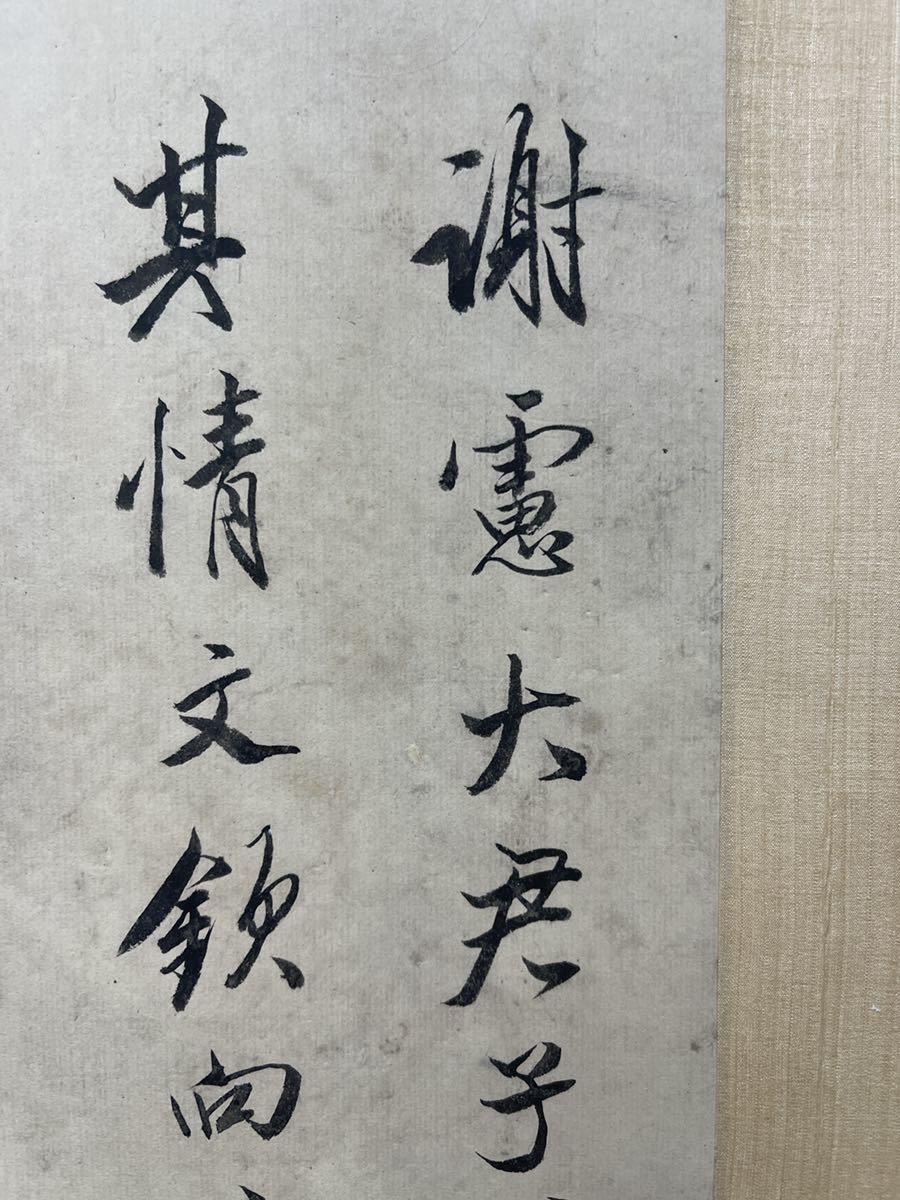 謝慮大君子
其情文欽向